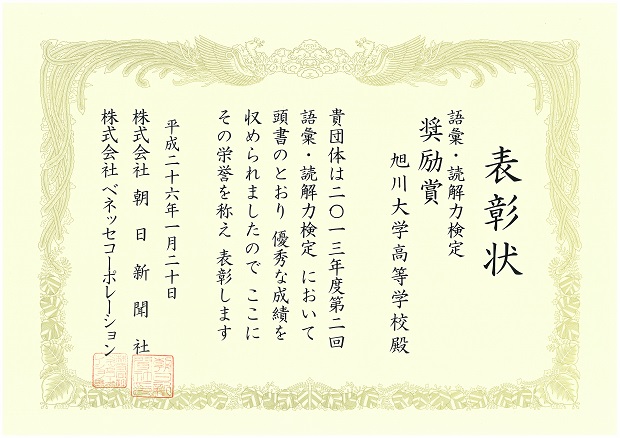 表彰状
語彙・読解力検定
奨励賞
旭川大学高等学校殿
貴団体は二〇一三年度第二回
語彙・読解力検定 において
頭書のとおり 優秀な成績を
収められましたので ここに
その栄誉を称え 表彰します
平成二十六年一月二十日
株式会社 朝日新聞社
株式会社 ベネッセコーポレーション